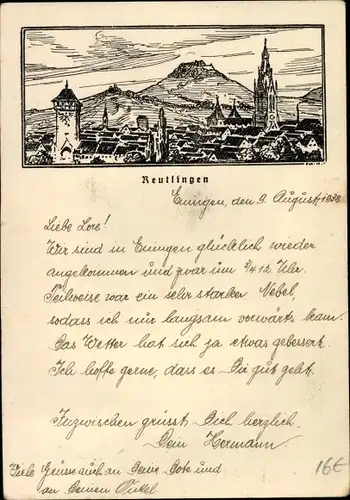 Reutlingen
Eningen, den 9. August 1938
Liebe Lore!
Wir sind in Eningen glücklich wieder
angekommen und zwar um 3/4 12 Uhr.
Teilweise war ein sehr starker Nebel,
sodass ich nur langsam vorwärts kam.
Das Wetter hat sich ja etwas gebessert.
Ich hoffe gerne, dass es Dir gut geht.
Inzwischen grüsst Dich herzlich
Dein Hermann
Viele Grüsse auch an Deine Dote und
an Deinen Onkel
16€